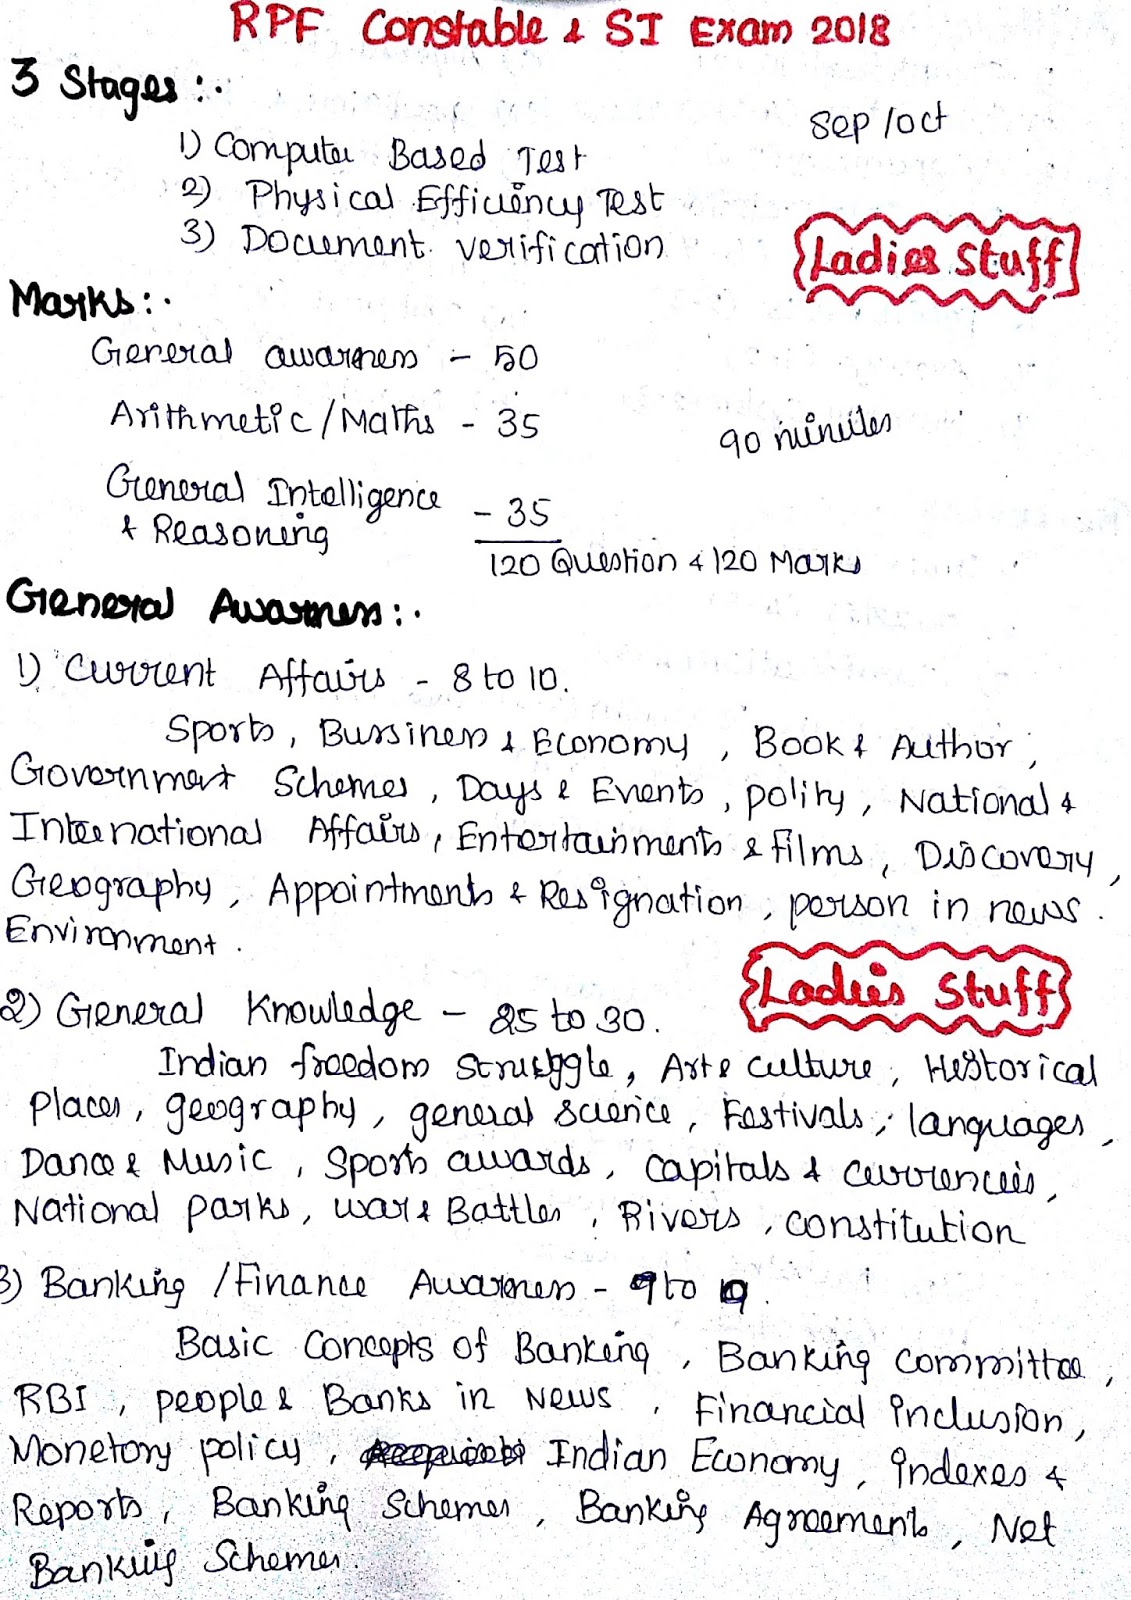 RPF Constable & SI Exam 2018
3 Stages :.
Sep / oct
1) Computer Based Test
2) Physical Efficiency Test
3) Document verification
Ladies Stuff
Marks:.
General awarness - 50
Arithmetic / Maths - 35
90 minutes
General Intelligence
& Reasoning - 35
120 Question & 120 Marks
General Awarness:.
1) Current Affairs - 8 to 10.
Sports, Bussiness & Economy, Book & Author,
Government Schemes, Days & Events, polity, National &
International Affairs, Entertainments & films, Discovery,
Geography, Appointments & Resignation, person in news.
Environment.
Ladies Stuff
2) General Knowledge - 25 to 30.
Indian freedom Struggle, Art & Culture, Historical
Places, geography, general science, Festivals, languages,
Dance & Music, Sports awards, Capitals & Currencies,
National parks, war & Battles, Rivers, constitution
3) Banking / Finance Awarness - 9 to
Basic Concepts of Banking, Banking committee,
RBI, people & Banks in News, Financial inclusion,
Monetory policy, Indian Economy, indexes &
Reports, Banking Schemes, Banking Agreements, Net
Banking Schemes.